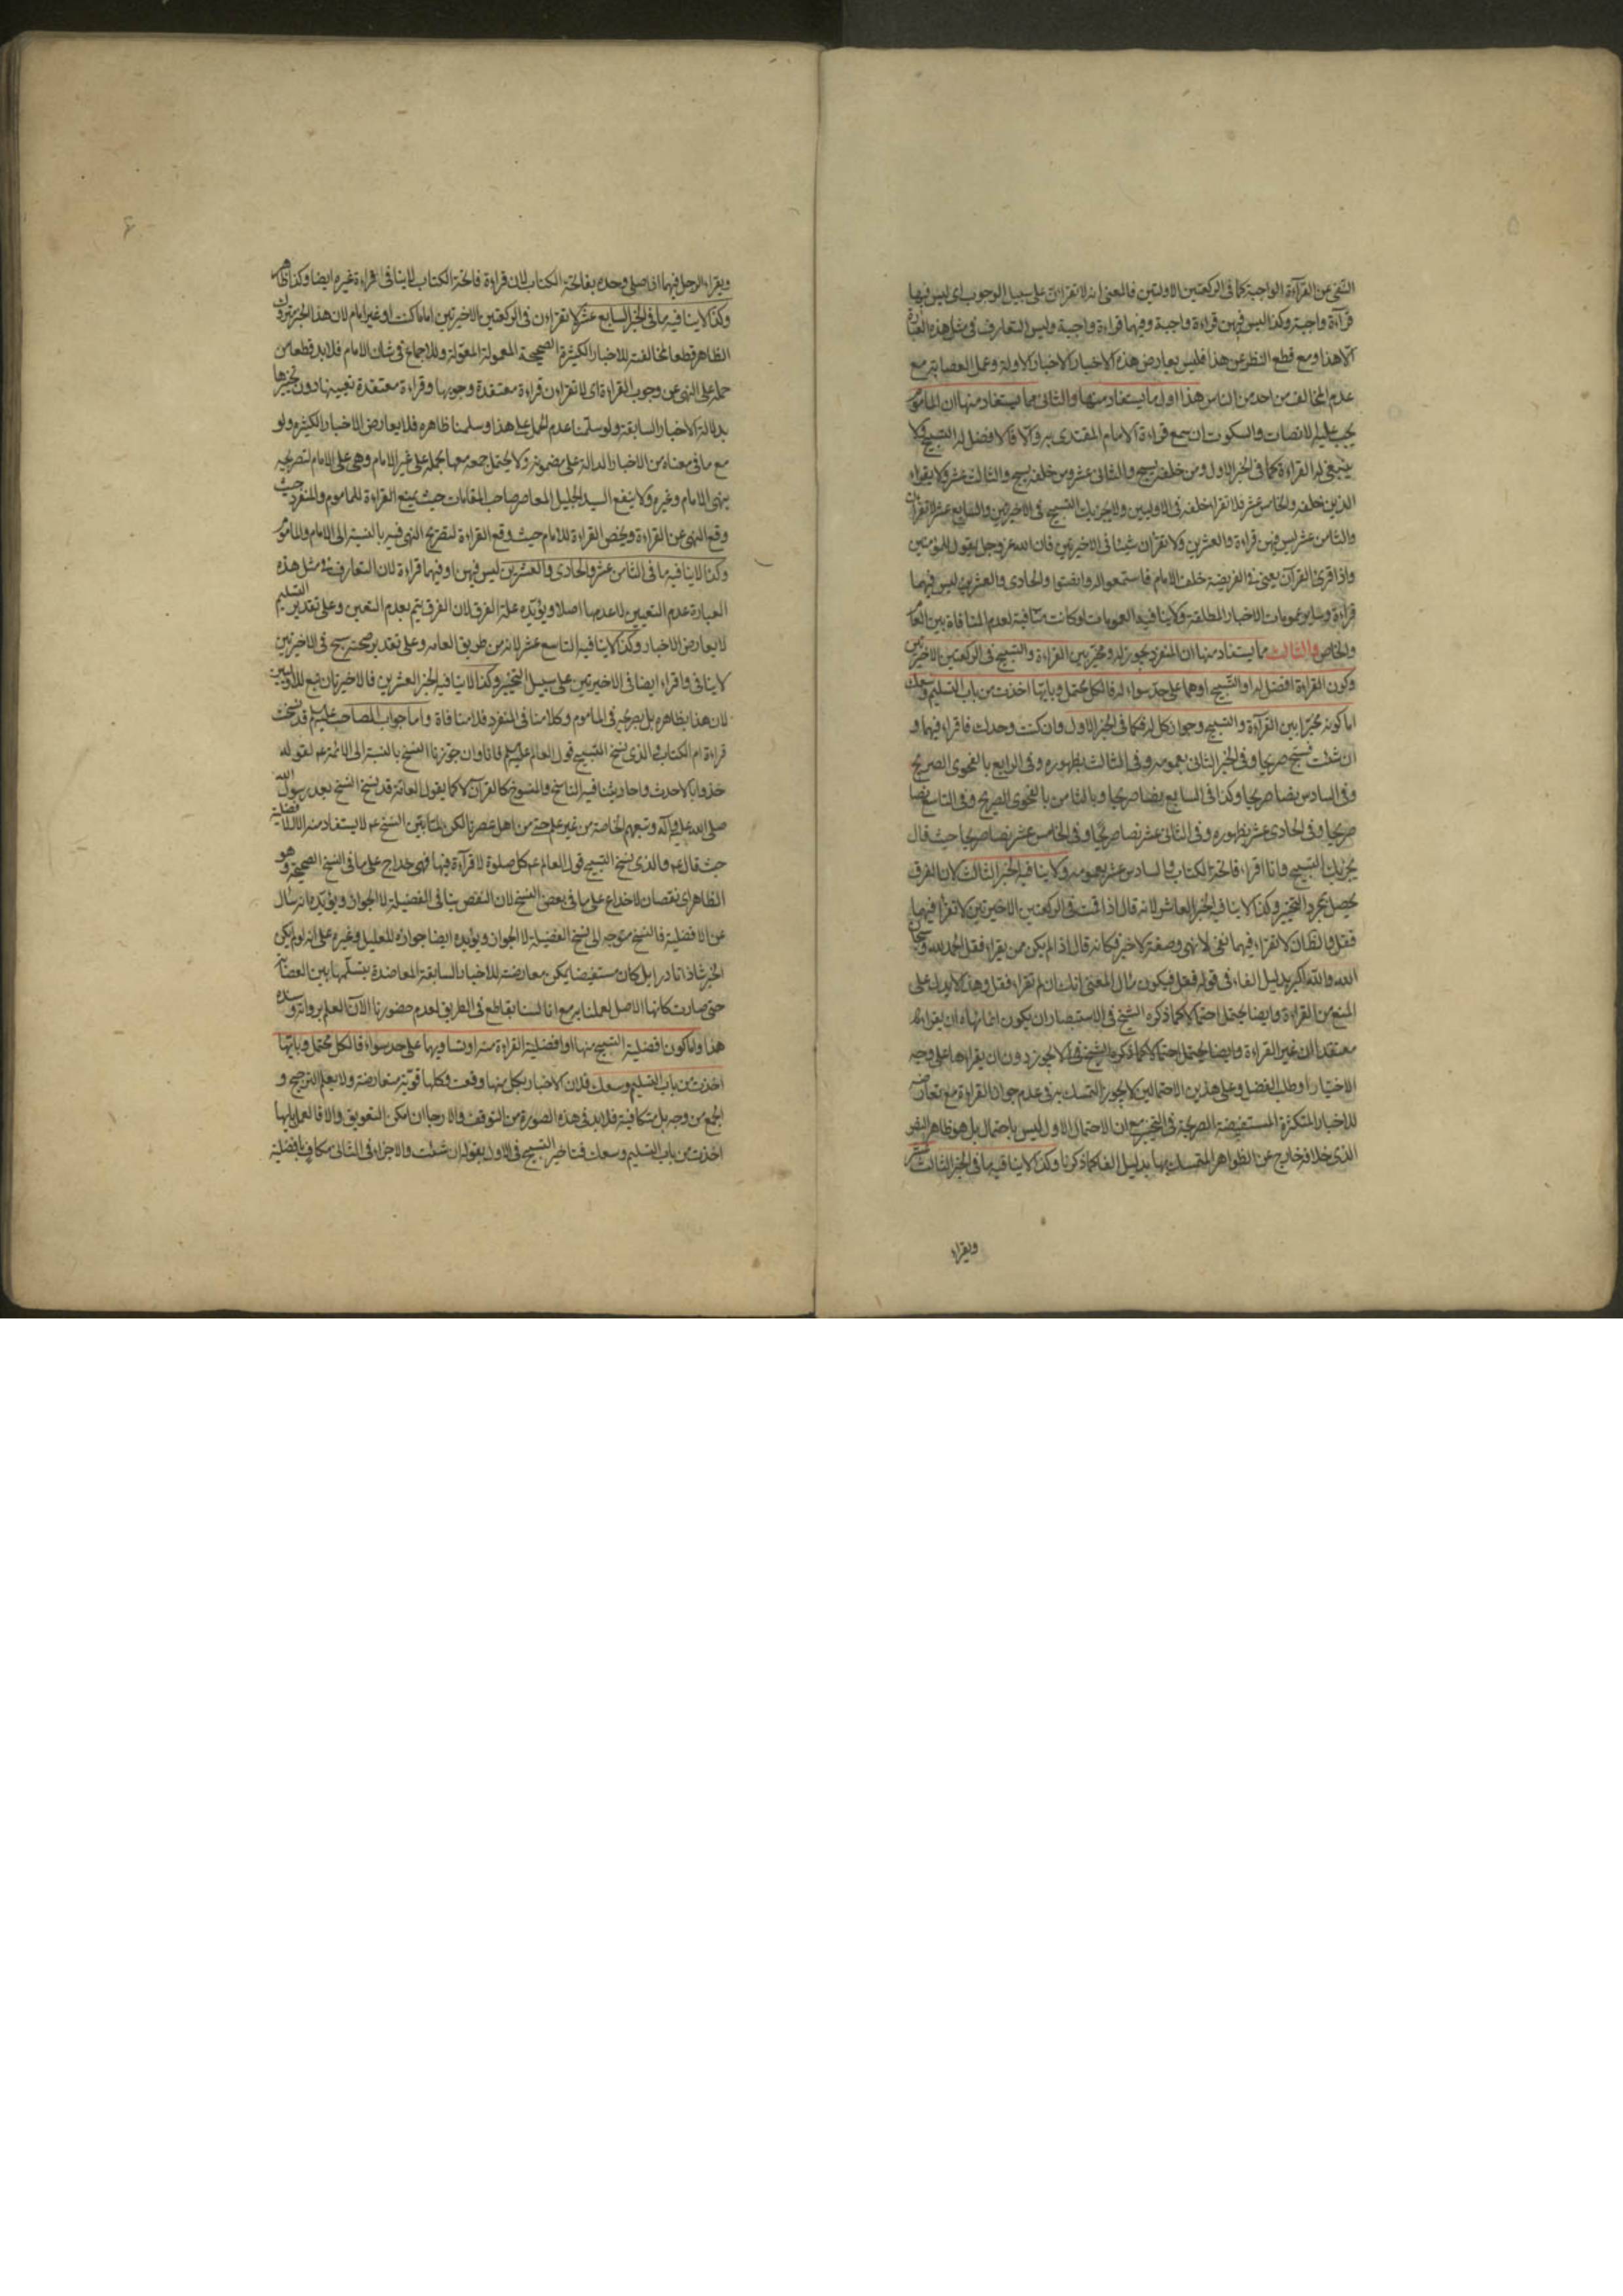 النفى عن القراءة الواجبة كما فى الركعتين الاوليين فالمعنى انه لا تقرأن على سبيل الوجوب اى ليس فيها
قراءة واجبة وكذا ليس فيهن قراءة واجبة وفيهما قراءة واجبة وليس التعارف فى مثل هذه العبارة
الا هذا ومع قطع النظر عن هذا فليس يعارض هذه الاخبار الاخبار الاولة وعمل العصابة مع
عدم المخالف من احد من الناس هذا اول ما يستفاد منها والثانى مما يستفاد منها ان الماموم
يجب عليه الانصات والسكوت ان سمع قراءة الامام المقتدى به والا فالافضل له التسبيح ولا
ينبغى له القراءة كما فى الخبر الاول ومن خلفه يسبح والثانى عشر ومن خلفه يسبح والثالث عشر ولا يقراء
الذين خلفه والخامس عشر فلا تقراء خلفه فى الاوليين ولا يجزيك التسبيح فى الاخيرتين والسابع عشر لا تقرأن
والثامن عشر ليس فيهن قراءة والعشرين ولا تقرأن شيئا فى الاخيرتين فان الله عز وجل يقول للمؤمنين
واذا قرئ القرآن يعنى فى الفريضة خلف الامام فاستمعوا له وانصتوا والحادى والعشرين ليس فيهما
قراءة وساير عمومات الاخبار المطلقة ولا ينافيه العمومات لو كانت منافية لعدم المنافاة بين العام
والخاص والثالث مما يستفاد منها ان المنفرد يجوز له ومخير بين القراءة والتسبيح فى الركعتين الاخيرتين
وكون القراءة افضل له او التسبيح او هما على حد سواء له فالكل محتمل وبايها اخذت من باب التسليم وسعك
اما كونه مخيرا بين القراءة والتسبيح وجواز كل له فكما فى الخبر الاول وان كنت وحدك فاقراء فيهما و
ان شئت فسبح صريحا وفى الخبر الثانى بعمومه وفى الثالث بظهوره وفى الرابع بالفحوى الصريح
وفى السادس نصا صريحا وكذا فى السابع نصا صريحا وبالثامن بالفحوى الصريح وفى التاسع نصا
صريحا وفى الحادى عشر بظهوره وفى الثانى عشر نصا صريحا وفى الخامس عشر نصا صريحا حيث قال
يجزيك التسبيح وانا اقراء فاتحة الكتاب والسادس عشر بعمومه ولا ينافيه الخبر الثالث لان الفرق
يحصل بمجرد التخيير وكذا لا ينافيه الخبر العاشر لانه قال اذا قمت فى الركعتين الاخيرتين لا تقرأ فيهما
فقل والظان لا تقراء فيهما نفى لا نهى وصفة لا خبر فكانه قال اذا لم يكن ممن يقراء فقل الحمد لله وسبحان
الله والله اكبر بدليل الفاء فى قوله فقل فيكون مثال المعنى انك ان لم تقراء فقل وهذا لا يدل على
المنع من القراءة وايضا يحتمل احتمالا كما ذكره الشيخ فى الاستبصار ان يكون انما نهاه ان يقراءها
معتقدا ان غير القراءة وايضا يحتمل احتمالا كما ذكره الشيخ لا يجوز دون ان يقراءها على وجه
الاختيار او طلب الفضل وعلى هذين الاحتمالين لا يجوز التمسك به فى عدم جواز القراءة مع تعارضه
للاخبار المتكثرة المستفيضة الصريحة فى التخيير مع ان الاحتمال الاول ليس باحتمال بل هو ظاهر الخبر
الذى خلافه خارج عن الظواهر المتمسك بها بدليل الفاء كما ذكرنا وكذا لا ينافيه ما فى الخبر الثالث عشر
ويقراء
ويقراء الرجل فيهما اذا صلى وحده بفاتحة الكتاب لان قراءة فاتحة الكتاب لا ينافى قراءة غيره ايضا وكذا ظاهر
وكذا لا ينافيه ما فى الخبر السابع عشر لا تقراءن فى الركعتين الاخيرتين اماما كنت او غير امام لان هذا الخبر متروك
الظاهر قطعا لمخالفته للاخبار الكثيرة الصحيحة المعمولة المعولة وللاجماع فى شان الامام فلابد قطعا من
حمله على النهى عن وجوب القراءة اى لا تقراءن قراءة معتقدة وجوبها وقراءة معتقدة تعيينها دون تخييرها
بدلالة الاخبار السابقة ولو سلمنا عدم الحمل على هذا وسلمنا ظاهره فلا يعارض الاخبار الكثيرة ولو
مع ما فى معناه من الاخبار الدالة على مضمونه ولا يحتمل جمعه معها بحمله على غير الامام وهى على الامام لتصريحه
بنهى الامام وغيره ولا ينفع السيد الجليل المعاصر صاحب المقامات حيث يمنع القراءة للماموم والمنفرد حيث
وقع النهى عن القراءة ويخص القراءة للامام حيث وقع القراءة لتصريح النهى فيه بالنسبة الى الامام والماموم
وكذا لا ينافيه ما فى الثامن عشر والحادى والعشرين ليس فيهن او فيهما قراءة لان التعارف فى مثل هذه
العبارة عدم التعيين لا عدمها اصلا ويؤيده علة الفرق لان الفرق يتم بعدم التعين وعلى تقدير التسليم
لا يعارض الاخبار وكذا لا ينافيه التاسع عشر لانه من طريق العامه وعلى تقدير صحته يسبح فى الاخيرتين
لا ينافى واقراء ايضا فى الاخيرتين على سبيل التخيير وكذا لا ينافيه الخبر العشرين فالاخيرتان تبع للاوليين
لان هذا بظاهره بل بصريحه فى الماموم وكلامنا فى المنفرد فلا منافاة واما جواب الصاحب عليه السلم قد نسخت
قراءة ام الكتاب والذى نسخ التسبيح قول العالم عليه السلم فانا وان جوزنا النسخ بالنسبة الى الائمة عم لقوله
خذوا بالاحدث واحاديثنا فيه الناسخ والمنسوخ كالقرآن لا كما يقول العامة قد نسخ النسخ بعد رسول الله
صلى الله عليه وآله وتبعهم الخاصة من غير علم حتى من اهل عصرنا لكن النسخ عم لا يستفاد منه الا الافضلية
حيث قال عم والذى نسخ التسبيح قول العالم عم كل صلوة لا قراءة فيها فهى خداج على ما فى النسخ الصحيحة وهو
الظاهر اى نقصان لا خداع على ما فى بعض النسخ لان النقص ينافى الفضيلة لا الجواز ويؤيده انه سئال
عن الافضلية فالنسخ متوجه الى نسخ الفضيلة لا الجواز ويؤيده ايضا جوازه للعليل وغيره على انه لو لم يكن
الخبر شاذا نادرا بل كان مستفيضا يمكن معارضته للاخبار السابقة المعاضدة بتسلمها بين العصابة
حتى صارت كانها الاصل لعملنا به مع انا لسنا بقاطع فى الطريق لعدم حضورنا الآن العلم برواته
هذا واما كون افضلية التسبيح منها او افضلية القراءة منه او تساويهما على حد سواء فالكل محتمل وبايها
اخذت من باب التسليم وسعك فلان الاخبار بكل منها وقعت وكلها قوية متعارضة ولا يعلم الترجيح و
الجمع من وجه بل متكافية فلابد فى هذه الصورة من التوقف والارجا ان امكن التعويق والا فالعمل بايها
اخذت من باب التسليم وسعك فتاخير التسبيح فى الاول بقوله ان شئت والاجزاء فى الثانى مكاف بافضلية